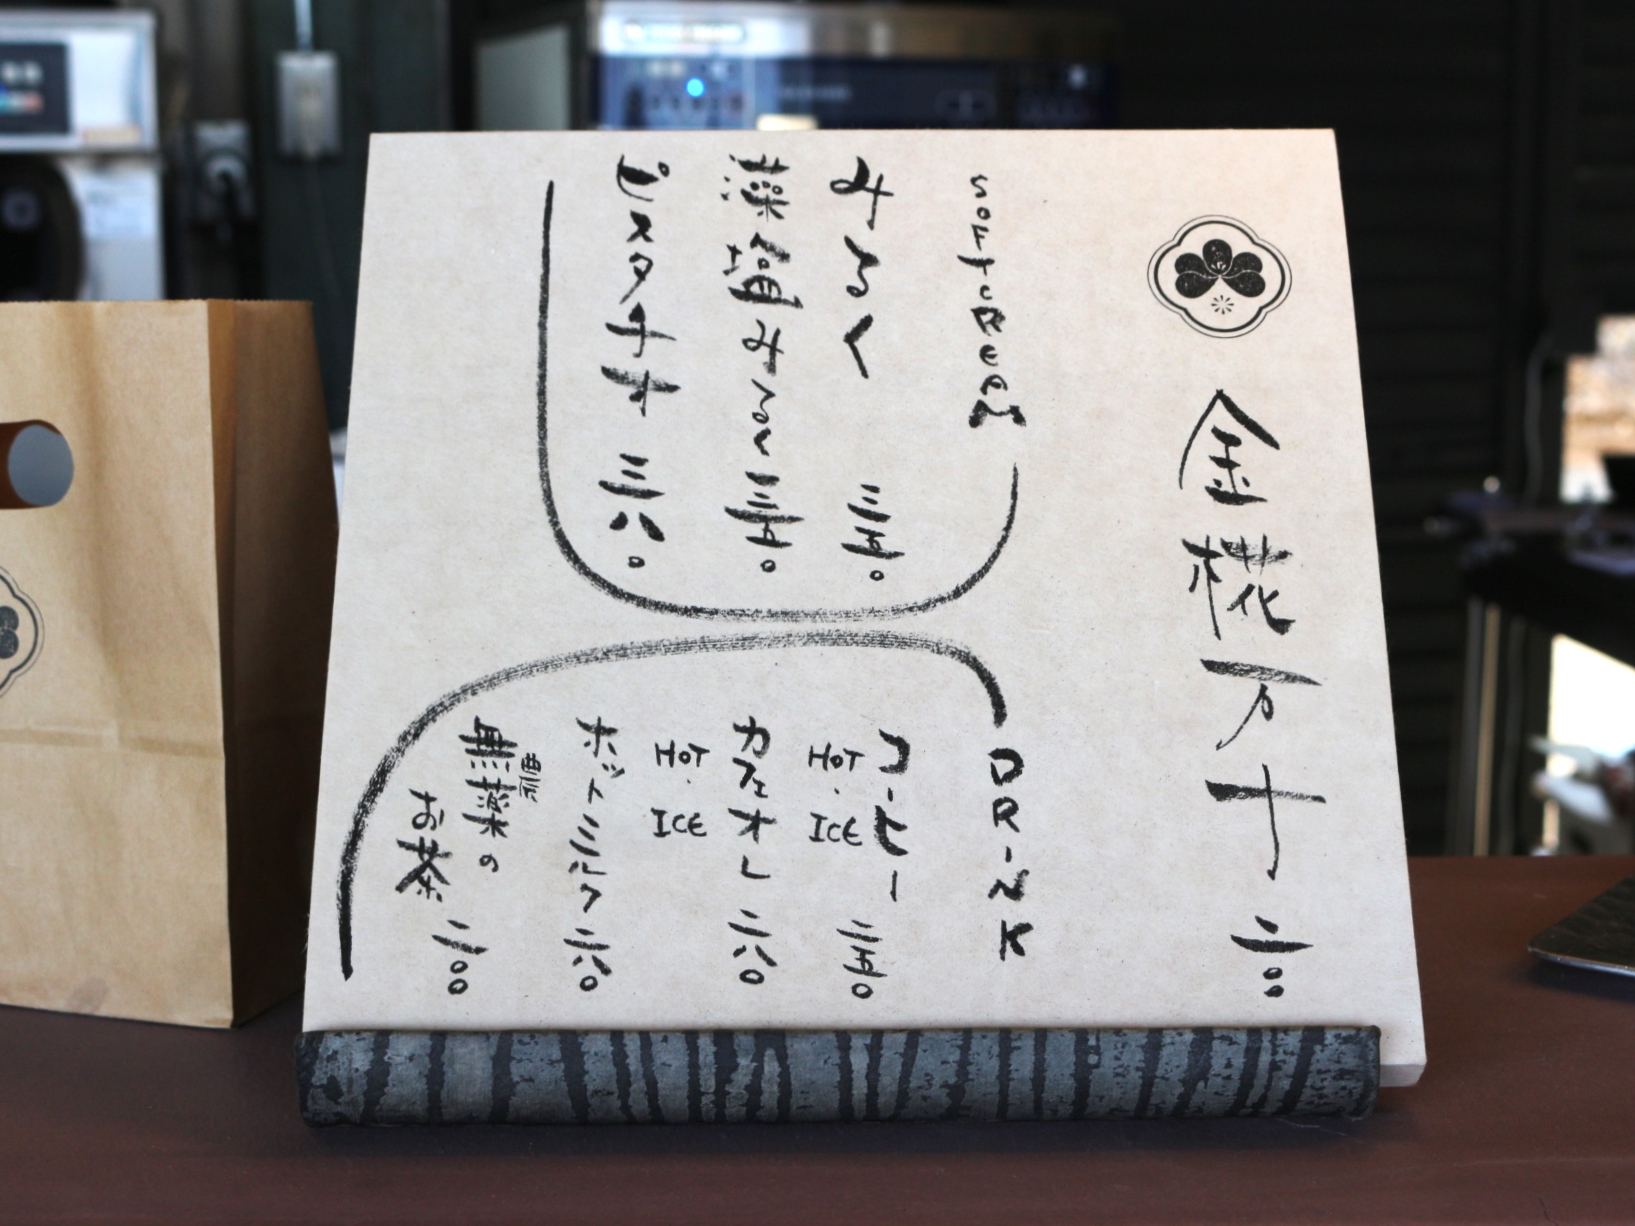 金椛万十 二〇〇
SOFTCREAM
みるく 三五〇
藻塩みるく 三五〇
ピスタチオ 三八〇
DRINK
コーヒー 三五〇
HOT・ICE
カフェオレ 二八〇
HOT・ICE
ホットミルク 二八〇
無農薬の
お茶 二〇〇